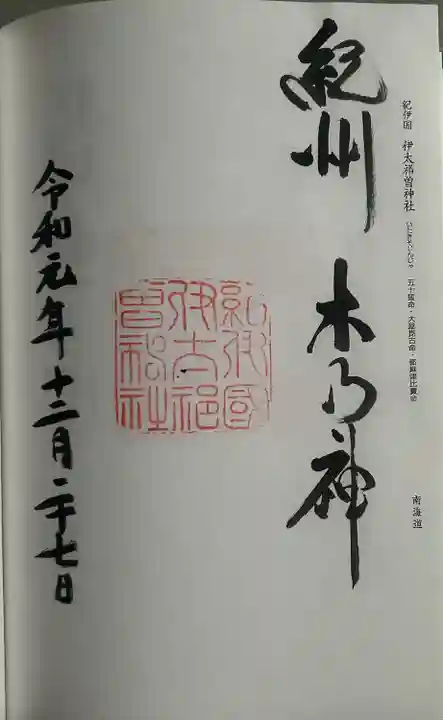 紀伊国 伊太祁曽神社 いたきそじんじゃ 五十猛命・大屋都比売命・都麻津比売命
南海道
紀州 木乃神
紀伊国
伊太祁
曽神社
令和元年十二月二十七日